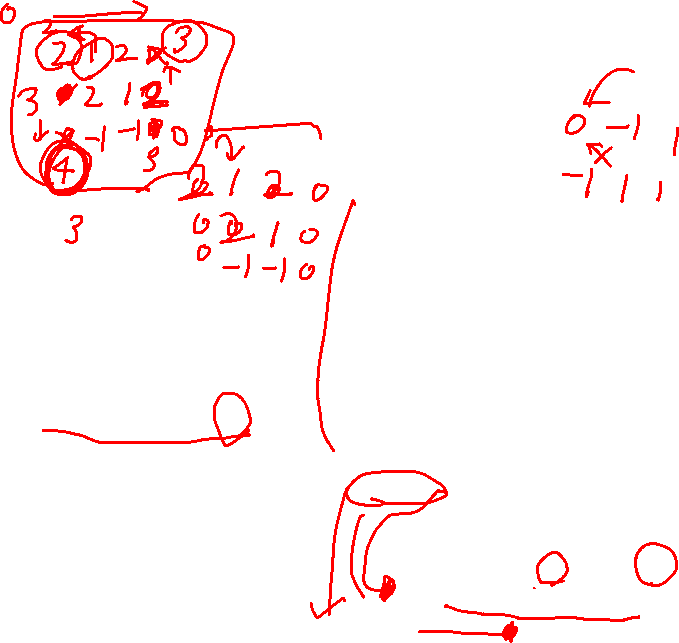 0
2
2 1 2 3
3 2 1 2
-1 -1 0
4 3
3
2 1 2 0
0 2 1 0
0 -1 -1 0
0 -1 1
x
-1 1 1